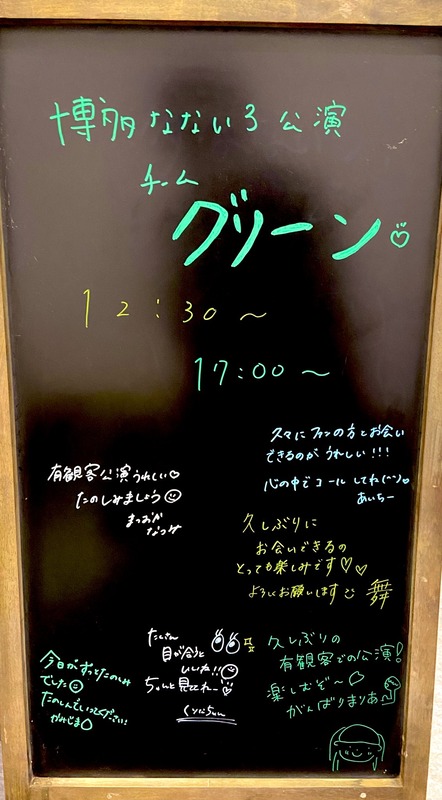 博多なないろ公演
チーム
グリーン
12:30～
17:00～
久々にファンの方とお会い
できるのがうれしい!!!
心の中でコールしてね(^^)
あいちー
有観客公演うれしい♡
たのしみましょう
まつおか
なつみ
久しぶりに
お会いできるの
とっても楽しみです♡♡
よろしくお願いします
舞
たくさん
目が合うと
いいね!!
ちゃんと見ててねー
くりにちゃん
久しぶりの
有観客での公演!
楽しむぞ〜
がんばりまりあ
今日がずっとたのしみ
でした
たのしんでいってください!